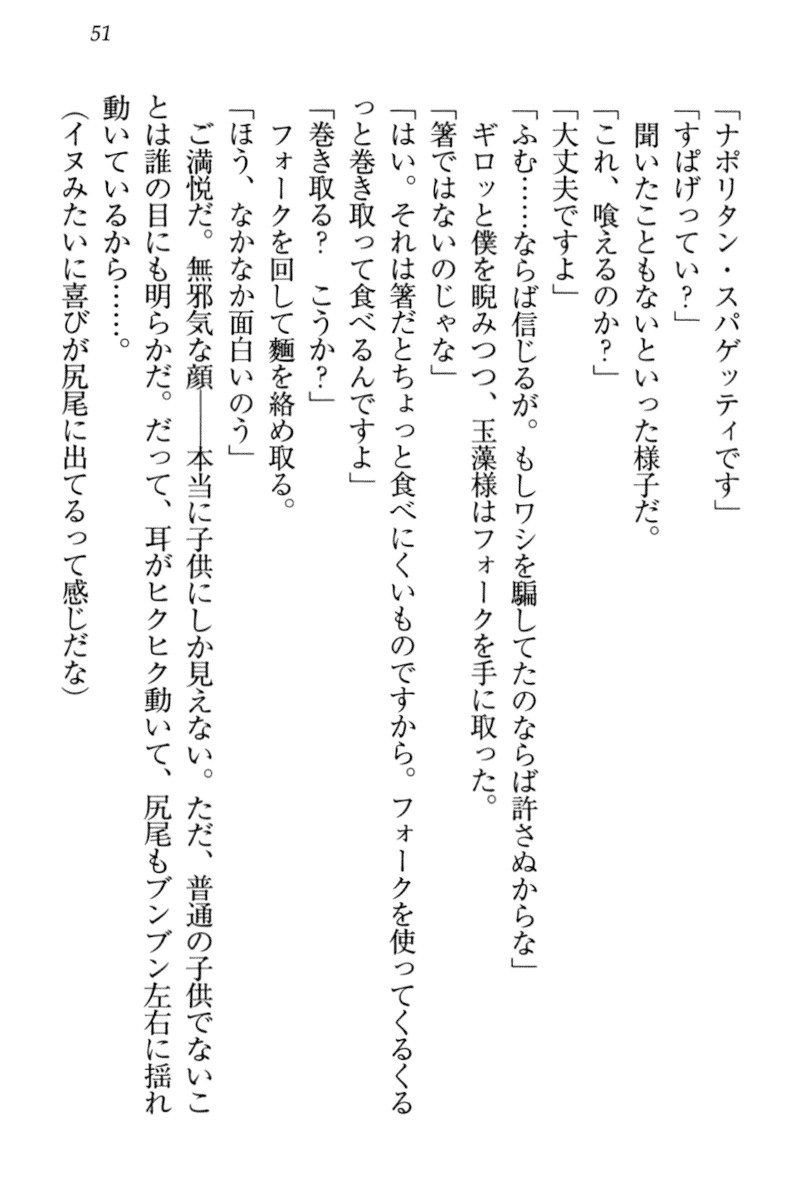 51
「ナポリタン・スパゲッティです」
「すぱげってぃ？」
　聞いたこともないといった様子だ。
「これ、喰えるのか？」
「大丈夫ですよ」
「ふむ……ならば信じるが。もしワシを騙してたのならば許さぬからな」
　ギロッと僕を睨みつつ、玉藻様はフォークを手に取った。
「箸ではないのじゃな」
「はい。それは箸だとちょっと食べにくいものですから。フォークを使ってくるくる
っと巻き取って食べるんですよ」
「巻き取る？　こうか？」
　フォークを回して麺を絡め取る。
「ほう、なかなか面白いのう」
　ご満悦だ。無邪気な顔――本当に子供にしか見えない。ただ、普通の子供でないこ
とは誰の目にも明らかだ。だって、耳がヒクヒク動いて、尻尾もブンブン左右に揺れ
動いているから……。
（イヌみたいに喜びが尻尾に出てるって感じだな）